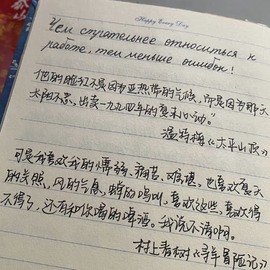 Happy Every Day
Чем старательнее относиться к
работе, тем меньше ошибок!
他的脸红不是因为亚热带的气候，而是因为那天
太阳不累，出卖一九九四年的夏末心动。"
温特梅《太平山顶》
可是我喜欢我的懦弱，痛苦、难堪，也喜欢夏天
的光照，风的气息，蝉的鸣叫，喜欢这些，喜欢得
不得了，还有和你喝的啤酒。我说不清啊。
村上春树《寻羊冒险记》